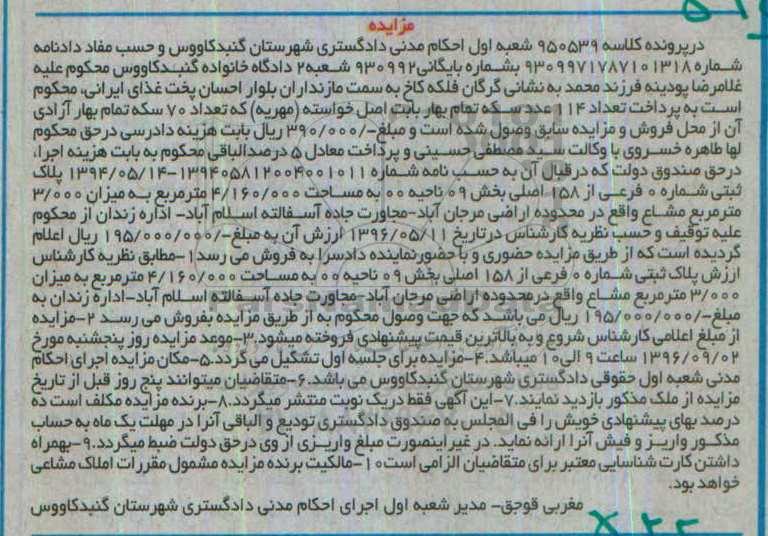 مزایده
درپرونده کلاسه ۹۵۰۵۳۹ شعبه اول احکام مدنی دادگستری شهرستان گنبدکاووس و حسب مفاد دادنامه
شماره ۹۳۰۹۹۷۱۷۸۷۱۰۱۳۱۸ بشماره بایگانی ۹۳۰۹۹۲ شعبه۲ دادگاه خانواده گنبدکاووس محکوم علیه
غلامرضا پودینه فرزند محمد به نشانی گرگان فلکه کاخ به سمت مازنداران بلوار احسان پخت غذای ایرانی، محکوم
است به پرداخت تعداد ۱۱۴ عدد سکه تمام بهار بابت اصل خواسته (مهریه) که تعداد ۷۰ سکه تمام بهار آزادی
آن از محل فروش و مزایده سابق وصول شده است و مبلغ-/۳۹۰/۰۰۰ ریال بابت هزینه دادرسی درحق محکوم
لها طاهره خسروی با وکالت سید مصطفی حسینی و پرداخت معادل ۵ درصدالباقی محکوم به بابت هزینه اجرا،
درحق صندوق دولت که درقبال آن به حسب نامه شماره ۱۳۹۴۰۵۸۱۲۰۰۴۰۰۱۰۱۱-۱۳۹۴/۰۵/۱۴ پلاک
ثبتی شماره ۰ فرعی از ۱۵۸ اصلی بخش ۰۹ ناحیه ۰۰ به مساحت ۴/۱۶۰/۰۰۰ مترمربع به میزان ۳/۰۰۰
مترمربع مشاع واقع در محدوده اراضی مرجان آباد-مجاورت جاده آسفالته اسلام آباد- اداره زندان از محکوم
علیه توقیف و حسب نظریه کارشناس درتاریخ ۱۳۹۶/۰۵/۱۱ ارزش آن به مبلغ-/۱۹۵/۰۰۰/۰۰۰ ریال اعلام
گردیده است که از طریق مزایده حضوری و با حضورنماینده دادسرا به فروش می رسد۱-مطابق نظریه کارشناس
ارزش پلاک ثبتی شماره ۰ فرعی از ۱۵۸ اصلی بخش ۰۹ ناحیه ۰۰ به مساحت ۴/۱۶۰/۰۰۰ مترمربع به میزان
۳/۰۰۰ مترمربع مشاع واقع درمحدوده اراضی مرجان آباد-مجاورت جاده آسفالته اسلام آباد-اداره زندان به
مبلغ-/۱۹۵/۰۰۰/۰۰۰ ریال می باشد که جهت وصول محکوم به از طریق مزایده بفروش می رسد ۲-مزایده
از مبلغ اعلامی کارشناس شروع و به بالاترین قیمت پیشنهادی فروخته میشود.۳-موعد مزایده روز پنجشنبه مورخ
۱۳۹۶/۰۹/۰۲ ساعت ۹ الی۱۰ میباشد.۴-مزایده برای جلسه اول تشکیل می گردد.۵-مکان مزایده اجرای احکام
مدنی شعبه اول حقوقی دادگستری شهرستان گنبدکاووس می باشد.۶-متقاضیان میتوانند پنج روز قبل از تاریخ
مزایده از ملک مذکور بازدید نمایند.۷-این آگهی فقط دریک نوبت منتشر میگردد.۸-برنده مزایده مکلف است ده
درصد بهای پیشنهادی خویش را فی المجلس به صندوق دادگستری تودیع و الباقی آنرا در مهلت یک ماه به حساب
مذکور واریز و فیش آنرا ارائه نماید. در غیر اینصورت مبلغ واریزی از وی درحق دولت ضبط میگردد.۹-بهمراه
داشتن کارت شناسایی معتبر برای متقاضیان الزامی است۱۰-مالکیت برنده مزایده مشمول مقررات املاک مشاعی
خواهد بود.
مغربی قوجق- مدیر شعبه اول اجرای احکام مدنی دادگستری شهرستان گنبدکاووس